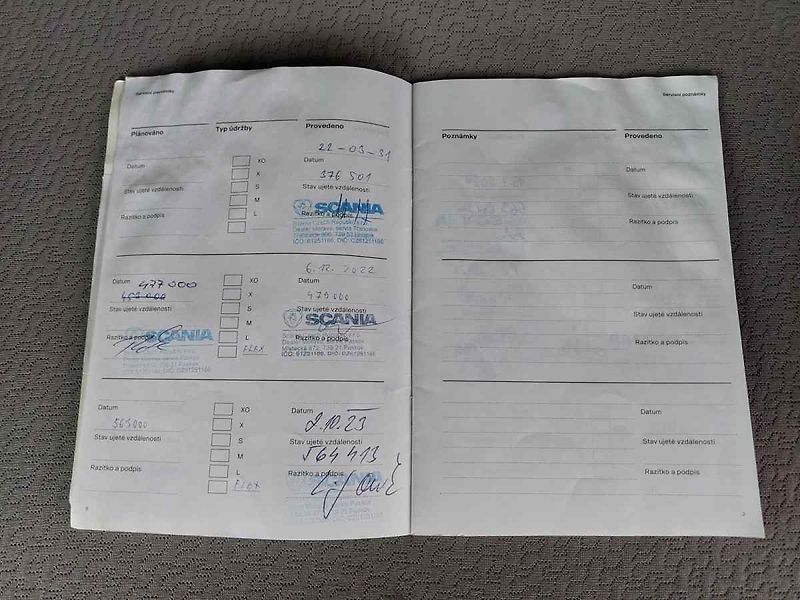 Servisní poznámky
Plánováno Typ údržby Provedeno
22-03-31
Datum XO Datum
X 376 501
Stav ujeté vzdálenosti S Stav ujeté vzdálenosti
M SCANIA
Razítko a podpis L Razítko a podpis
Scania Czech Republic
IČO: 61251186, DIČ: CZ61251186
6.12.2022
Datum 477 000 XO Datum
457 000 X 475 000
Stav ujeté vzdálenosti S Stav ujeté vzdálenosti
M SCANIA
SCANIA
Razítko a podpis L Razítko a podpis
FLEX Místecká 872, 739 21 Paskov
IČO: 61251186, DIČ: CZ61251186
Datum XO Datum
563000 X 2.10.23
Stav ujeté vzdálenosti S Stav ujeté vzdálenosti
M 564 413
Razítko a podpis L Razítko a podpis
FLEX SCANIA
Servisní poznámky
Poznámky Provedeno
Datum
Stav ujeté vzdálenosti
Razítko a podpis
Datum
Stav ujeté vzdálenosti
Razítko a podpis
Datum
Stav ujeté vzdálenosti
Razítko a podpis